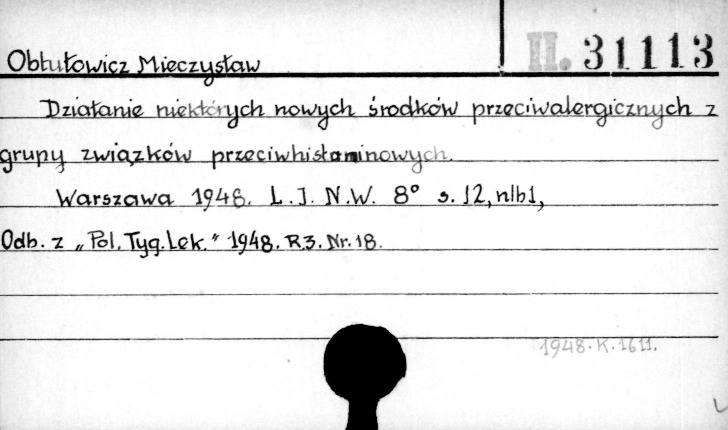 Obtułowicz Mieczysław
II. 31113
Działanie niektórych nowych środków przeciwalergicznych z
grupy związków przeciwhistaminowych.
Warszawa 1948. L.I. N.W. 8° s. 12, nlb1,
Odb. z „Pol. Tyg. Lek." 1948. R3. Nr. 18.
1948. K. 1611.